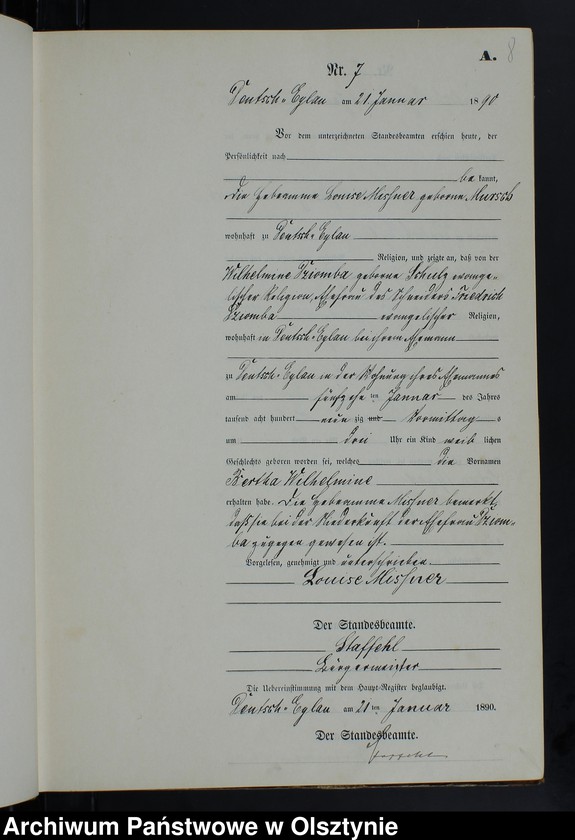 A. 8
Nr. 7
Deutsch-Eylau am 21 Januar 1890
Vor dem unterzeichneten Standesbeamten erschien heute, der
Persönlichkeit nach
be kannt,
die Hebeamme Louise Missner geborne Mursch
wohnhaft zu Deutsch-Eylau
Religion, und zeigte an, daß von der
Wilhelmine Dziomba geborne Schulz evange-
lischer Religion, Ehefrau des Schneiders Friedrich
Dziomba evangelischer Religion,
wohnhaft in Deutsch-Eylau bei ihrem Ehemann
zu Deutsch-Eylau in der Wohnung ihres Ehemannes
am fünfzehn ten Januar des Jahres
tausend acht hundert neun zig und Vormittags
um drei Uhr ein Kind weib lichen
Geschlechts geboren worden sei, welches die Vornamen
Bertha Wilhelmine
erhalten habe. Die Hebeamme Missner bemerkt,
daß sie bei der Niederkunft der Ehefrau Dziom-
ba zugegen gewesen ist.
Vorgelesen, genehmigt und unterschrieben.
Louise Missner
Der Standesbeamte.
Staffehl
Bürgermeister
Die Uebereinstimmung mit dem Haupt-Register beglaubigt.
Deutsch-Eylau am 21 ten Januar 1890.
Der Standesbeamte.
Staffehl
Archiwum Państwowe w Olsztynie